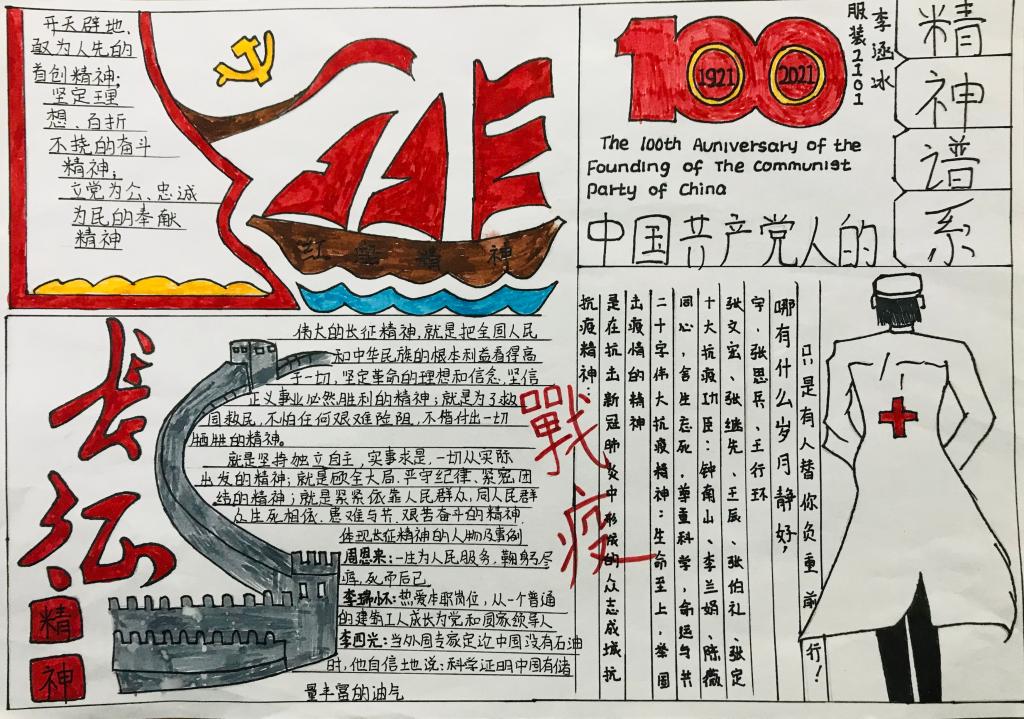 开天辟地、
敢为人先的
首创精神；
坚定理
想、百折
不挠的奋斗
精神；
立党为公、忠诚
为民的奉献
精神
红船精神
100
1921
2021
The 100th Auniversary of the
Founding of The Communist
Party of China
服装2101
李涵冰
中国共产党人的
精神谱系
长征
精神
伟大的长征精神，就是把全国人民
和中华民族的根本利益看得高
于一切，坚定革命的理想和信念，坚信
正义事业必然胜利的精神；就是为了救
国救民，不怕任何艰难险阻，不惜付出一切
牺牲的精神。
就是坚持独立自主，实事求是，一切从实际
出发的精神；就是顾全大局、严守纪律、紧密团
结的精神；就是紧紧依靠人民群众，同人民群
众生死相依、患难与共、艰苦奋斗的精神
体现长征精神的人物及事例
周恩来：一生为人民服务，鞠躬尽
瘁，死而后已
李瑞怀：热爱本职岗位，从一个普通
的建筑工人成长为党和国家领导人
李四光：当外国专家定论中国没有石油
时，他自信地说：科学证明中国有储
量丰富的油气
戰疫
只是有人替你负重前行！
哪有什么岁月静好，
宇、张思兵、王行环
张文宏、张继先、王辰、张伯礼、张定
十大抗疫功臣：钟南山、李兰娟、陈薇
同心，舍生忘死，尊重科学，命运与共
二十字伟大抗疫精神：生命至上，举国
击疫情的精神
是在抗击新冠肺炎中形成的众志成城抗
抗疫精神：